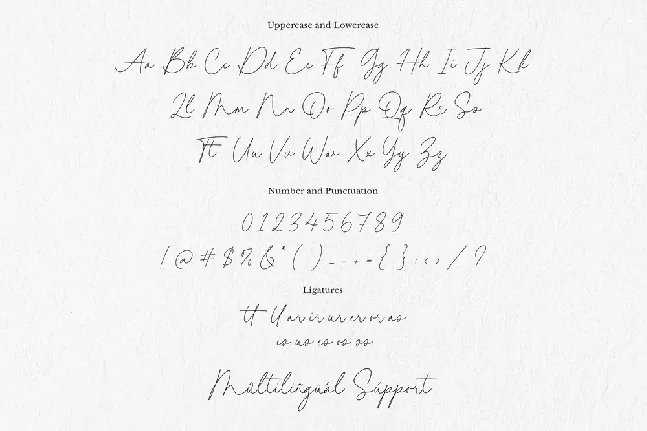 Uppercase and Lowercase
Aa Bb Cc Dd Ee Ff Gg Hh Ii Jj Kk
Ll Mm Nn Oo Pp Qq Rr Ss
Tt Uu Vv Ww Xx Yy Zz
Number and Punctuation
0 1 2 3 4 5 6 7 8 9
! @ # $ % & * ( ) _ - + = { } : ; , / ?
Ligatures
tt ll ar ir ur er or as
is us es os
Multilingual Support